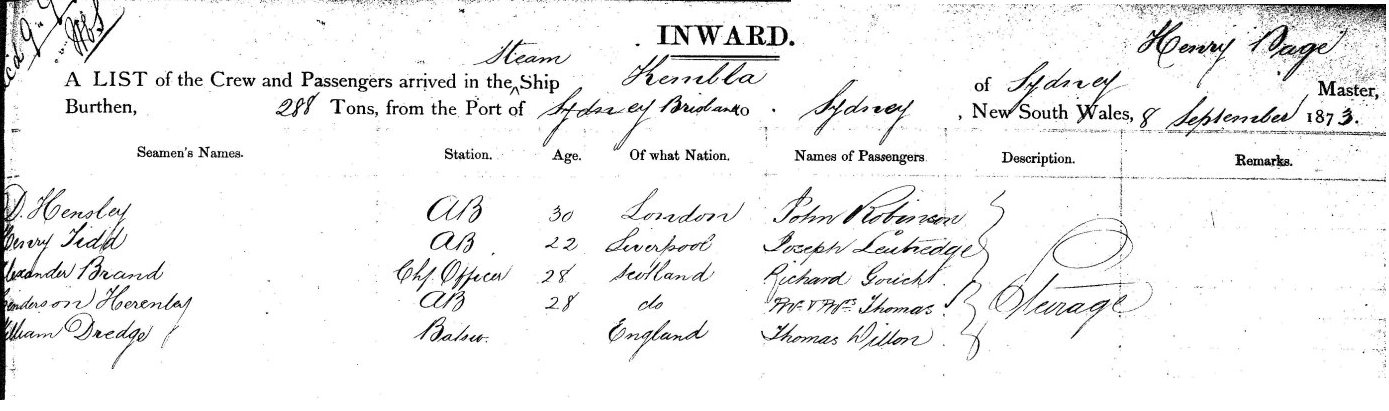 INWARD.
Steam Henry Page
A LIST of the Crew and Passengers arrived in the ^ Ship Kembla of Sydney Master,
Burthen, 288 Tons, from the Port of Sydney Brisbane to Sydney, New South Wales, 8 September 1873.
Seamen's Names. Station. Age. Of what Nation. Names of Passengers Description. Remarks.
D. Hensley AB 30 London John Robinson
Henry Tidd AB 22 Liverpool Joseph
Alexander Brand Chf Officer 28 Scotland Richard
AB 28 do Mr & Mrs Thomas
William Dredge England Thomas
Sterage